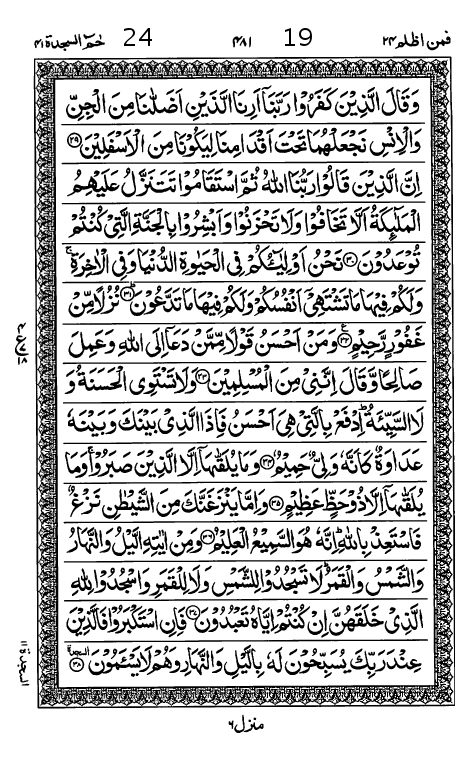 فمن اظلم ٢٤ 19 ٤٨١ 24 حٰم السجدة ٤١
وَقَالَ الَّذِيْنَ كَفَرُوْا رَبَّنَاۤ اَرِنَا الَّذَيْنِ اَضَلّٰنَا مِنَ الْجِنِّ
وَالْاِنْسِ نَجْعَلْهُمَا تَحْتَ اَقْدَامِنَا لِيَكُوْنَا مِنَ الْاَسْفَلِيْنَ ﴿٢٩﴾
اِنَّ الَّذِيْنَ قَالُوْا رَبُّنَا اللّٰهُ ثُمَّ اسْتَقَامُوْا تَتَنَزَّلُ عَلَيْهِمُ
الْمَلٰٓئِكَةُ اَلَّا تَخَافُوْا وَلَا تَحْزَنُوْا وَاَبْشِرُوْا بِالْجَنَّةِ الَّتِيْ كُنْتُمْ
تُوْعَدُوْنَ ﴿٣٠﴾ نَحْنُ اَوْلِيٰٓؤُكُمْ فِي الْحَيٰوةِ الدُّنْيَا وَفِي الْاٰخِرَةِ ۚ
وَلَكُمْ فِيْهَا مَا تَشْتَهِيْۤ اَنْفُسُكُمْ وَلَكُمْ فِيْهَا مَا تَدَّعُوْنَ ﴿٣١﴾ نُزُلًا مِّنْ
غَفُوْرٍ رَّحِيْمٍ ﴿٣٢﴾ وَمَنْ اَحْسَنُ قَوْلًا مِّمَّنْ دَعَاۤ اِلَى اللّٰهِ وَعَمِلَ
صَالِحًا وَّقَالَ اِنَّنِيْ مِنَ الْمُسْلِمِيْنَ ﴿٣٣﴾ وَلَا تَسْتَوِي الْحَسَنَةُ وَ
لَا السَّيِّئَةُ ؕ اِدْفَعْ بِالَّتِيْ هِيَ اَحْسَنُ فَاِذَا الَّذِيْ بَيْنَكَ وَبَيْنَهٗ
عَدَاوَةٌ كَاَنَّهٗ وَلِيٌّ حَمِيْمٌ ﴿٣٤﴾ وَمَا يُلَقّٰىهَاۤ اِلَّا الَّذِيْنَ صَبَرُوْا ۚ وَمَا
يُلَقّٰىهَاۤ اِلَّا ذُوْ حَظٍّ عَظِيْمٍ ﴿٣٥﴾ وَاِمَّا يَنْزَغَنَّكَ مِنَ الشَّيْطٰنِ نَزْغٌ
فَاسْتَعِذْ بِاللّٰهِ ؕ اِنَّهٗ هُوَ السَّمِيْعُ الْعَلِيْمُ ﴿٣٦﴾ وَمِنْ اٰيٰتِهِ الَّيْلُ وَالنَّهَارُ
وَالشَّمْسُ وَالْقَمَرُ ؕ لَا تَسْجُدُوْا لِلشَّمْسِ وَلَا لِلْقَمَرِ وَاسْجُدُوْا لِلّٰهِ
الَّذِيْ خَلَقَهُنَّ اِنْ كُنْتُمْ اِيَّاهُ تَعْبُدُوْنَ ﴿٣٧﴾ فَاِنِ اسْتَكْبَرُوْا فَالَّذِيْنَ
عِنْدَ رَبِّكَ يُسَبِّحُوْنَ لَهٗ بِالَّيْلِ وَالنَّهَارِ وَهُمْ لَا يَسْئَمُوْنَ ﴿٣٨﴾
السجدة ١١
منزل ٦